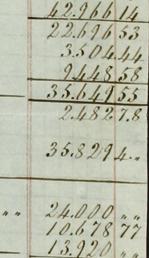 42.966 14
22.696 53
3.504 44
9.448 58
35.649 55
2.482 78
35.829 4 „
„ „ 24.000 „ „
10.678 77
13.920 „ „